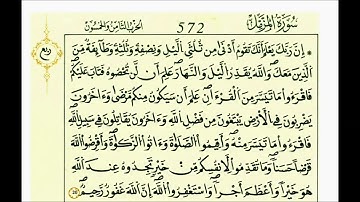 سورة المزمل 572 الحزب الثامن والخمسون
ربع
إن ربك يعلم أنك تقوم أدنى من ثلثي الليل ونصفه وثلثه وطائفة من
الذين معك والله يقدر الليل والنهار علم أن لن تحصوه فتاب عليكم
فاقرءوا ما تيسر من القرءان علم أن سيكون منكم مرضى وءاخرون
يضربون في الأرض يبتغون من فضل الله وءاخرون يقاتلون في سبيل الله
فاقرءوا ما تيسر منه وأقيموا الصلوة وءاتوا الزكوة وأقرضوا الله
قرضا حسنا وما تقدموا لأنفسكم من خير تجدوه عند الله
هو خيرا وأعظم أجرا واستغفروا الله إن الله غفور رحيم